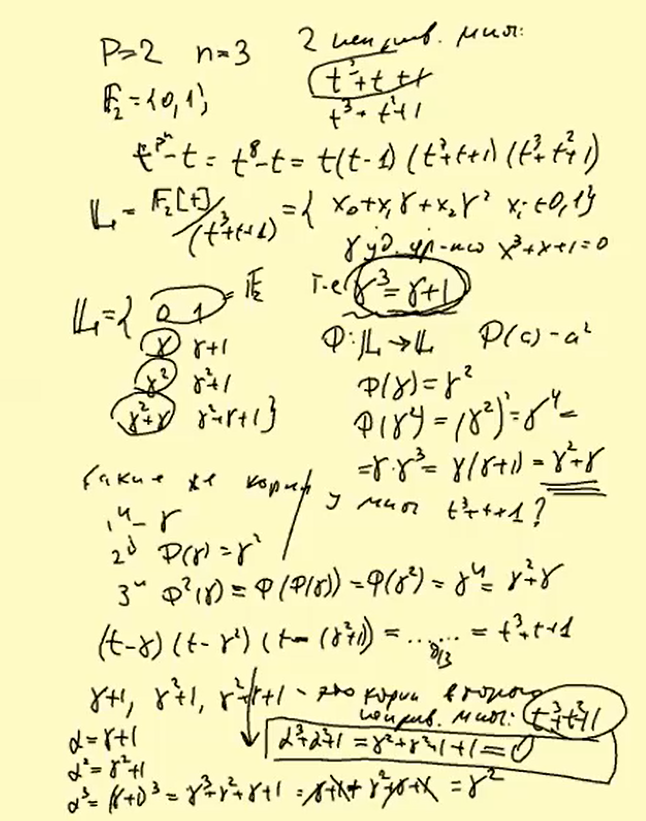 P=2 n=3 2 неприв. мнгл:
F₂={0,1} t³+t+1
t³+t²+1
t^(pⁿ)-t = t⁸-t = t(t-1)(t³+t+1)(t³+t²+1)
𝕃 = F₂[t]/(t³+t+1) = { x₀+x₁γ+x₂γ² xᵢ=0,1}
γ уд. ур-ию x³+x+1=0
т.е. γ³=γ+1
𝕃={ 0 1 = F₂
γ γ+1
γ² γ²+1
γ²+γ γ²+γ+1}
Φ: 𝕃→𝕃 Φ(a)=a²
Φ(γ)=γ²
Φ(γ⁴)=(γ²)²=γ⁴=
=γ·γ³=γ(γ+1)=γ²+γ
Какие же корни у мног t³+t+1?
1й - γ
2й Φ(γ)=γ²
3й Φ²(γ)=Φ(Φ(γ))=Φ(γ²)=γ⁴=γ²+γ
(t-γ)(t-γ²)(t-(γ²+1))=......=t³+t+1
γ+1, γ²+1, γ²+γ+1 - это корни второго
неприв. мног: t³+t²+1
α=γ+1
α²=γ²+1
α³+α²+1=γ²+γ²+1+1=0
α³=(γ+1)³=γ³+γ²+γ+1=γ+1+γ²+γ+1=γ²